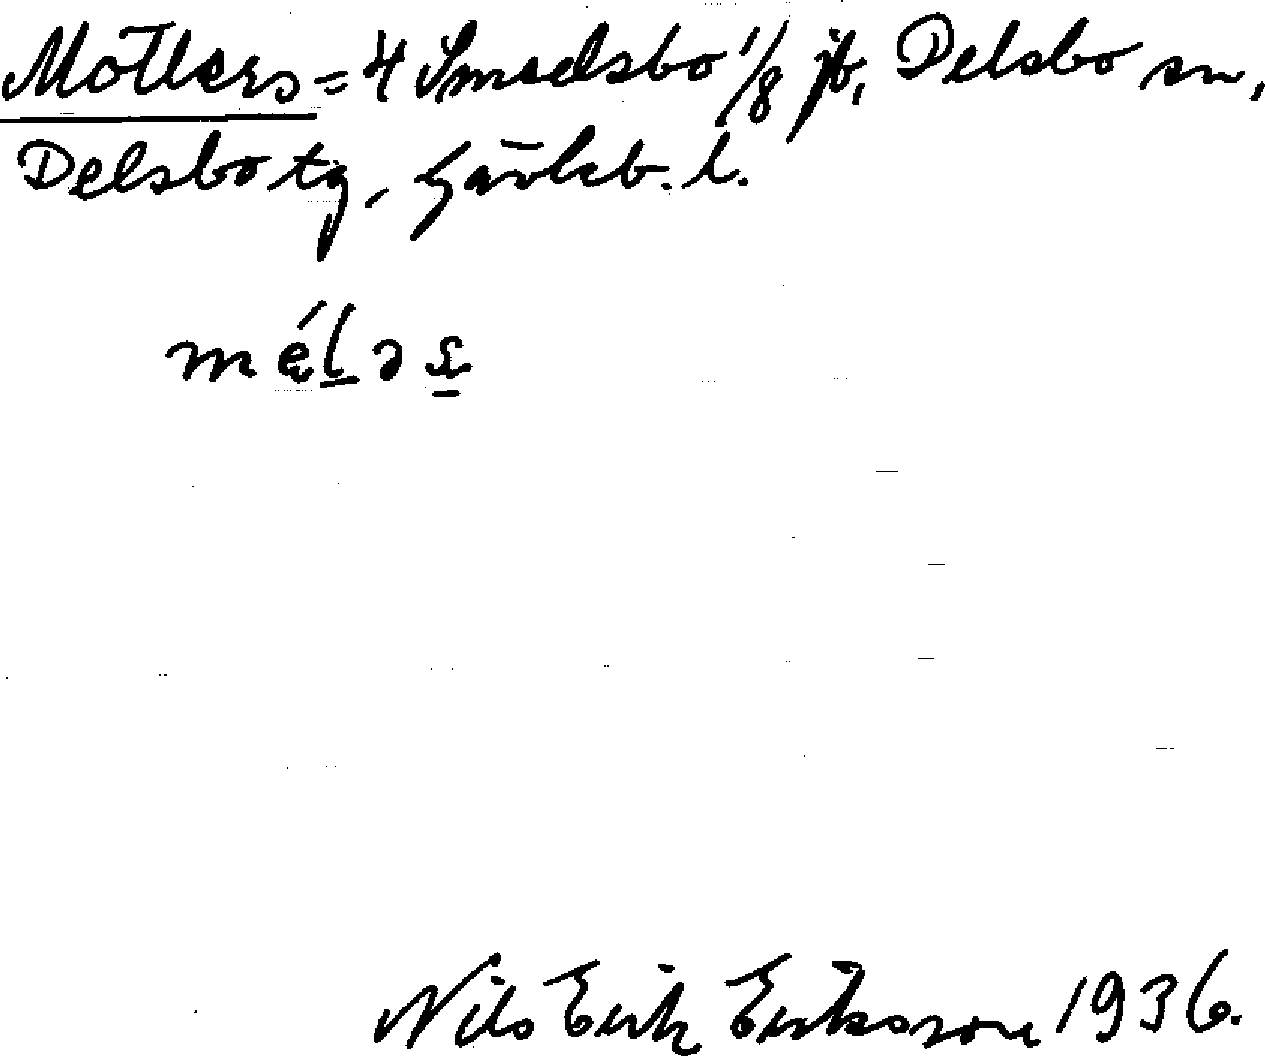 Möllers = 4 Smedsbo 1/8 jb, Delsbo sn,
Delsbo tg, Gävleb. l.
Nils Erik Eriksson 1936.